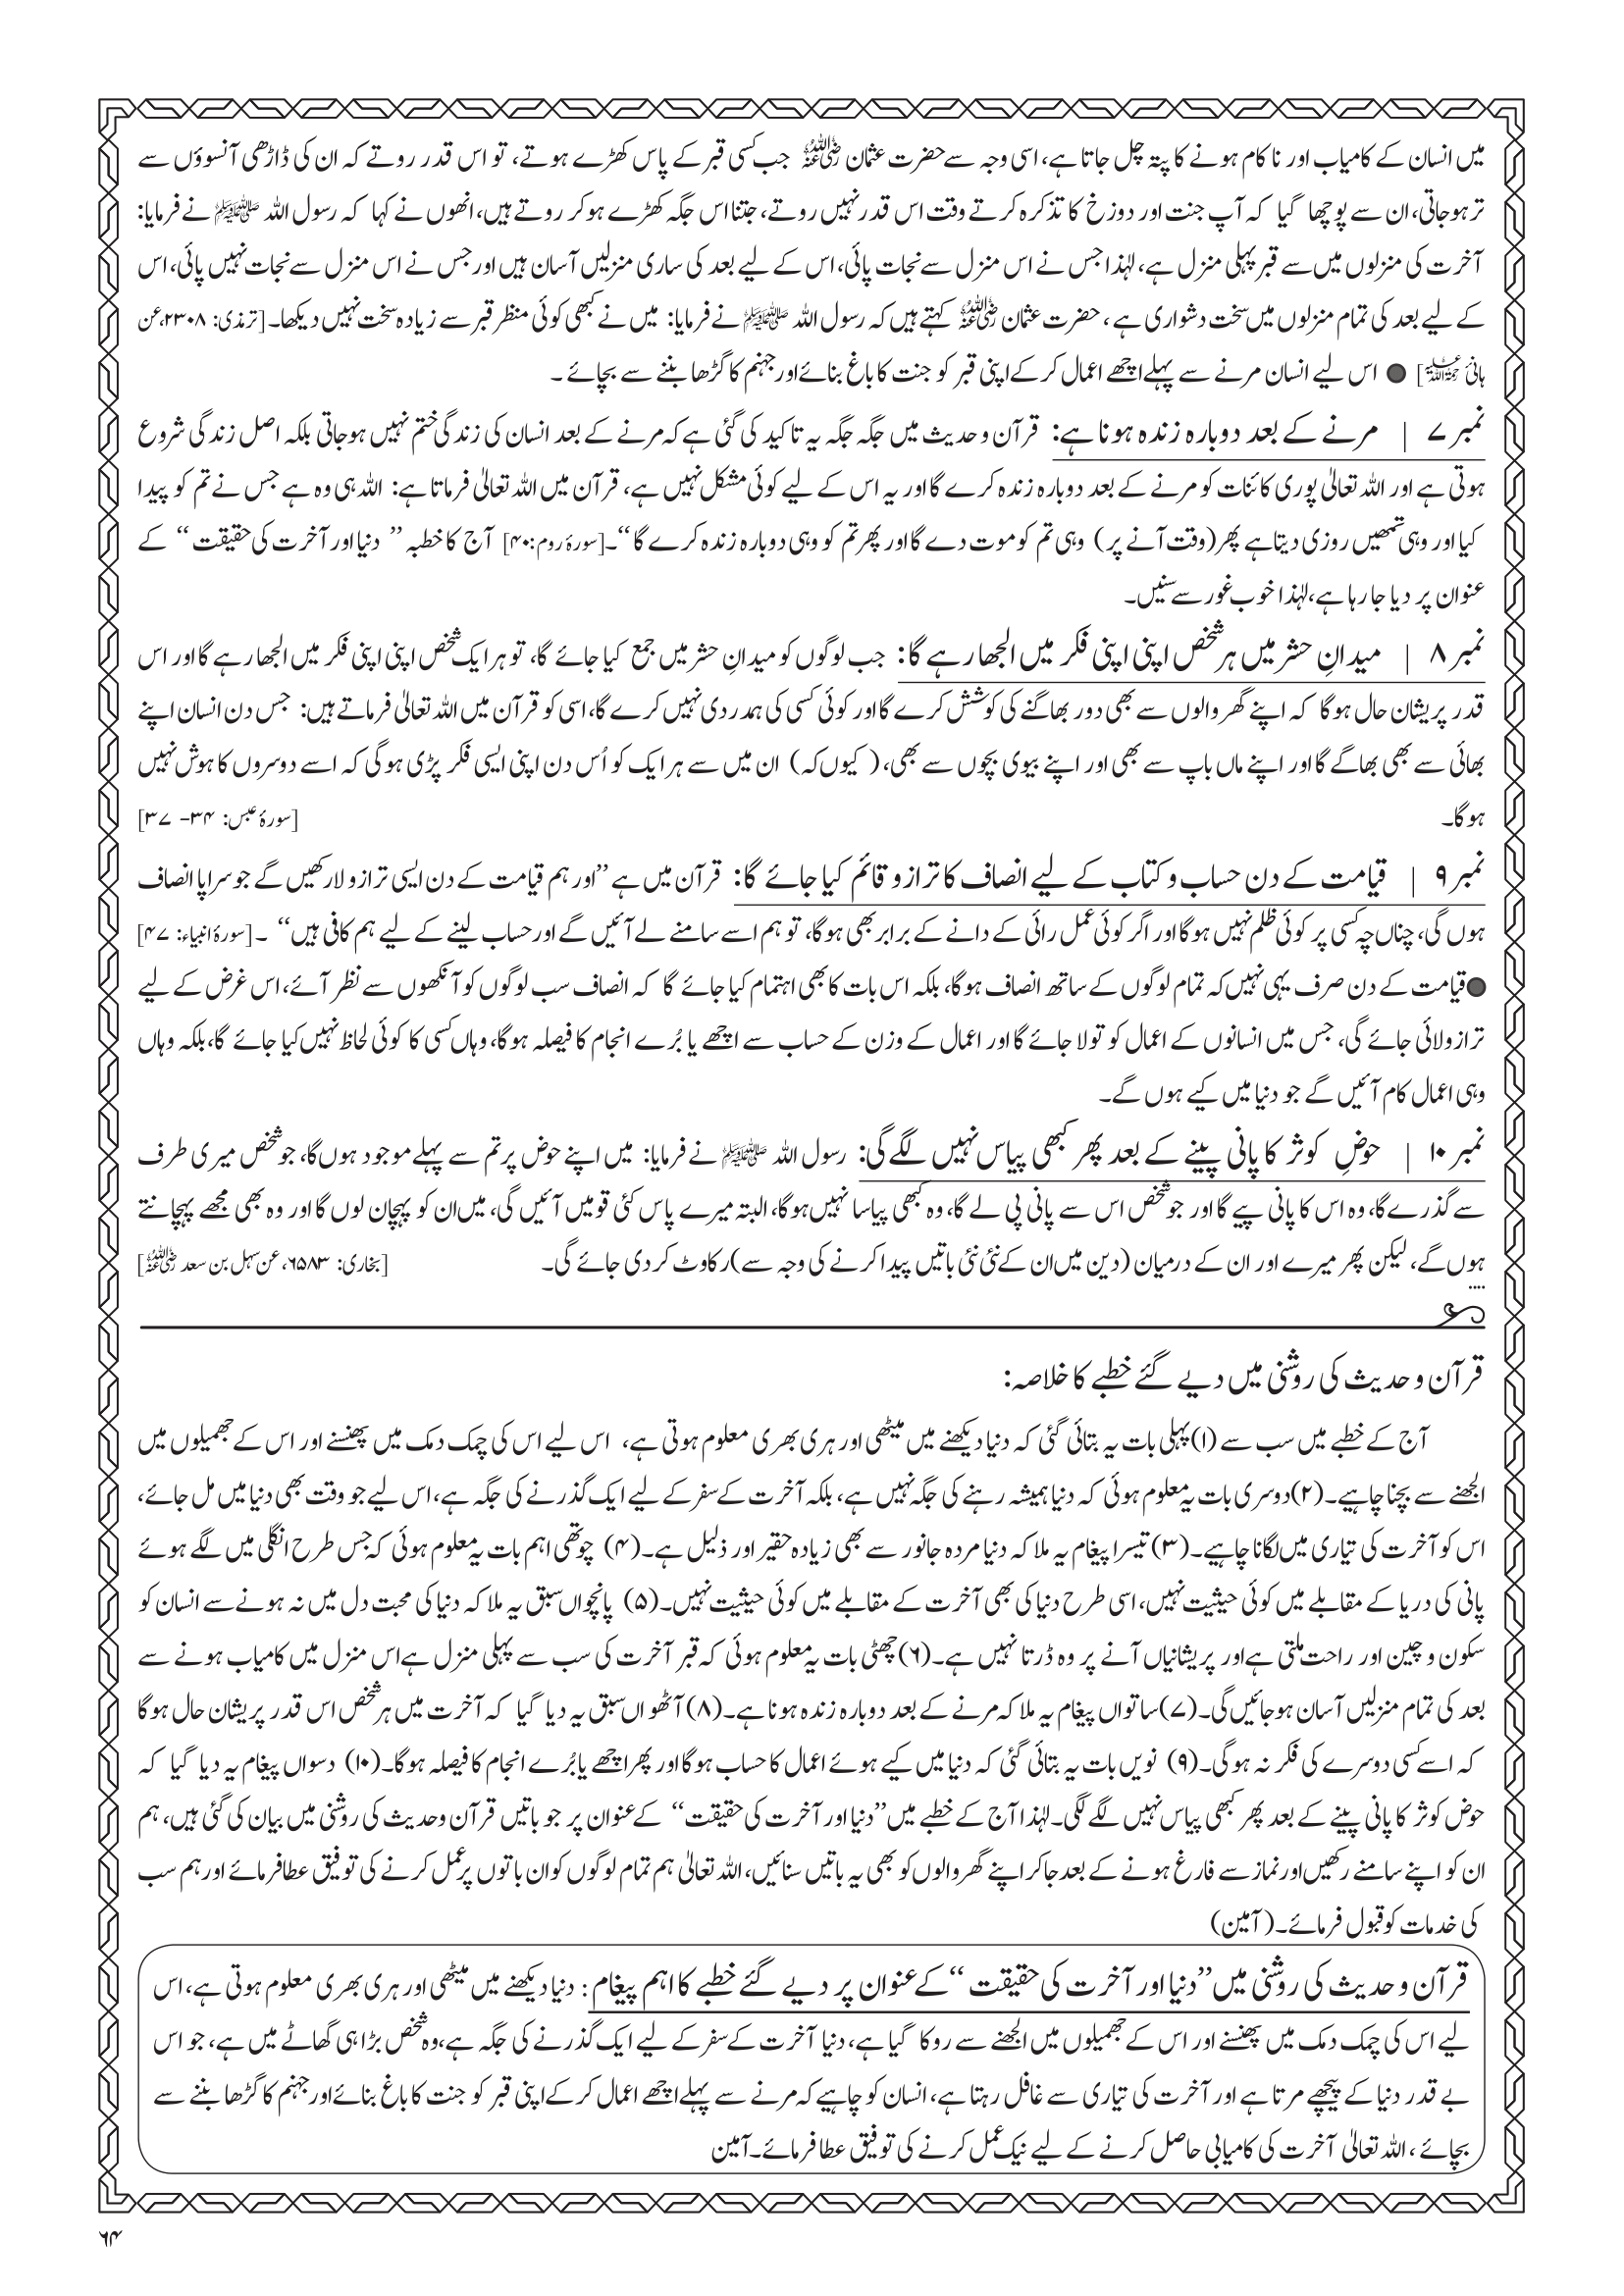 میں انسان کے کامیاب اور نا کام ہونے کا پتہ چل جاتا ہے، اسی وجہ سے حضرت عثمان رضی اللہ عنہ جب کسی قبر کے پاس کھڑے ہوتے، تو اس قدر روتے کہ ان کی ڈاڑھی آنسوؤں سے
تر ہو جاتی، ان سے پوچھا گیا کہ آپ جنت اور دوزخ کا تذکرہ کرتے وقت اس قدر نہیں روتے، جتنا اس جگہ کھڑے ہو کر روتے ہیں، انھوں نے کہا کہ رسول اللہ ﷺ نے فرمایا:
آخرت کی منزلوں میں سے قبر پہلی منزل ہے، لہٰذا جس نے اس منزل سے نجات پائی، اس کے لیے بعد کی ساری منزلیں آسان ہیں اور جس نے اس منزل سے نجات نہیں پائی، اس
کے لیے بعد کی تمام منزلوں میں سخت دشواری ہے، حضرت عثمان رضی اللہ عنہ کہتے ہیں کہ رسول اللہ ﷺ نے فرمایا: میں نے کبھی کوئی منظر قبر سے زیادہ سخت نہیں دیکھا۔ [ترمذی: ۲۳۰۸، عن
ہانی رحمۃ اللہ علیہ] ● اس لیے انسان مرنے سے پہلے اچھے اعمال کر کے اپنی قبر کو جنت کا باغ بنائے اور جہنم کا گڑھا بننے سے بچائے۔
نمبر ۷ | مرنے کے بعد دوبارہ زندہ ہونا ہے: قرآن و حدیث میں جگہ جگہ یہ تاکید کی گئی ہے کہ مرنے کے بعد انسان کی زندگی ختم نہیں ہو جاتی بلکہ اصل زندگی شروع
ہوتی ہے اور اللہ تعالیٰ پوری کائنات کو مرنے کے بعد دوبارہ زندہ کرے گا اور یہ اس کے لیے کوئی مشکل نہیں ہے، قرآن میں اللہ تعالیٰ فرماتا ہے: اللہ ہی وہ ہے جس نے تم کو پیدا
کیا اور وہی تمھیں روزی دیتا ہے پھر (وقت آنے پر) وہی تم کو موت دے گا اور پھر تم کو وہی دوبارہ زندہ کرے گا“۔ [سورۂ روم: ۴۰] آج کا خطبہ ”دنیا اور آخرت کی حقیقت“ کے
عنوان پر دیا جا رہا ہے، لہٰذا خوب غور سے سنیں۔
نمبر ۸ | میدانِ حشر میں ہر شخص اپنی اپنی فکر میں الجھا رہے گا: جب لوگوں کو میدانِ حشر میں جمع کیا جائے گا، تو ہر ایک شخص اپنی اپنی فکر میں الجھا رہے گا اور اس
قدر پریشان حال ہوگا کہ اپنے گھر والوں سے بھی دور بھاگنے کی کوشش کرے گا اور کوئی کسی کی ہمدردی نہیں کرے گا، اسی کو قرآن میں اللہ تعالیٰ فرماتے ہیں: جس دن انسان اپنے
بھائی سے بھی بھاگے گا اور اپنے ماں باپ سے بھی اور اپنے بیوی بچوں سے بھی، (کیوں کہ) ان میں سے ہر ایک کو اُس دن اپنی ایسی فکر پڑی ہوگی کہ اسے دوسروں کا ہوش نہیں
ہوگا۔ [سورۂ عبس: ۳۴- ۳۷]
نمبر ۹ | قیامت کے دن حساب و کتاب کے لیے انصاف کا ترازو قائم کیا جائے گا: قرآن میں ہے ”اور ہم قیامت کے دن ایسی ترازو لا رکھیں گے جو سراپا انصاف
ہوں گی، چناں چہ کسی پر کوئی ظلم نہیں ہوگا اور اگر کوئی عمل رائی کے دانے کے برابر بھی ہوگا، تو ہم اسے سامنے لے آئیں گے اور حساب لینے کے لیے ہم کافی ہیں“ ۔ [سورۂ انبیاء: ۴۷]
● قیامت کے دن صرف یہی نہیں کہ تمام لوگوں کے ساتھ انصاف ہوگا، بلکہ اس بات کا بھی اہتمام کیا جائے گا کہ انصاف سب لوگوں کو آنکھوں سے نظر آئے، اس غرض کے لیے
ترازو لائی جائے گی، جس میں انسانوں کے اعمال کو تولا جائے گا اور اعمال کے وزن کے حساب سے اچھے یا بُرے انجام کا فیصلہ ہوگا، وہاں کسی کا کوئی لحاظ نہیں کیا جائے گا، بلکہ وہاں
وہی اعمال کام آئیں گے جو دنیا میں کیے ہوں گے۔
نمبر ۱۰ | حوضِ کوثر کا پانی پینے کے بعد پھر کبھی پیاس نہیں لگے گی: رسول اللہ ﷺ نے فرمایا: میں اپنے حوض پر تم سے پہلے موجود ہوں گا، جو شخص میری طرف
سے گذرے گا، وہ اس کا پانی پیے گا اور جو شخص اس سے پانی پی لے گا، وہ کبھی پیاسا نہیں ہوگا، البتہ میرے پاس کئی قومیں آئیں گی، میں ان کو پہچان لوں گا اور وہ بھی مجھے پہچانتے
ہوں گے، لیکن پھر میرے اور ان کے درمیان (دین میں ان کے نئی نئی باتیں پیدا کرنے کی وجہ سے) رکاوٹ کر دی جائے گی۔ [بخاری: ۶۵۸۳، عن سہل بن سعد رضی اللہ عنہ]
قرآن و حدیث کی روشنی میں دیے گئے خطبے کا خلاصہ:
آج کے خطبے میں سب سے (۱) پہلی بات یہ بتائی گئی کہ دنیا دیکھنے میں میٹھی اور ہری بھری معلوم ہوتی ہے، اس لیے اس کی چمک دمک میں پھنسنے اور اس کے جھمیلوں میں
الجھنے سے بچنا چاہیے۔ (۲) دوسری بات یہ معلوم ہوئی کہ دنیا ہمیشہ رہنے کی جگہ نہیں ہے، بلکہ آخرت کے سفر کے لیے ایک گذرنے کی جگہ ہے، اس لیے جو وقت بھی دنیا میں مل جائے،
اس کو آخرت کی تیاری میں لگانا چاہیے۔ (۳) تیسرا پیغام یہ ملا کہ دنیا مردہ جانور سے بھی زیادہ حقیر اور ذلیل ہے۔ (۴) چوتھی اہم بات یہ معلوم ہوئی کہ جس طرح انگلی میں لگے ہوئے
پانی کی دریا کے مقابلے میں کوئی حیثیت نہیں، اسی طرح دنیا کی بھی آخرت کے مقابلے میں کوئی حیثیت نہیں۔ (۵) پانچواں سبق یہ ملا کہ دنیا کی محبت دل میں نہ ہونے سے انسان کو
سکون و چین اور راحت ملتی ہے اور پریشانیاں آنے پر وہ ڈرتا نہیں ہے۔ (۶) چھٹی بات یہ معلوم ہوئی کہ قبر آخرت کی سب سے پہلی منزل ہے اس منزل میں کامیاب ہونے سے
بعد کی تمام منزلیں آسان ہو جائیں گی۔ (۷) ساتواں پیغام یہ ملا کہ مرنے کے بعد دوبارہ زندہ ہونا ہے۔ (۸) آٹھواں سبق یہ دیا گیا کہ آخرت میں ہر شخص اس قدر پریشان حال ہوگا
کہ اسے کسی دوسرے کی فکر نہ ہوگی۔ (۹) نویں بات یہ بتائی گئی کہ دنیا میں کیے ہوئے اعمال کا حساب ہوگا اور پھر اچھے یا بُرے انجام کا فیصلہ ہوگا۔ (۱۰) دسواں پیغام یہ دیا گیا کہ
حوض کوثر کا پانی پینے کے بعد پھر کبھی پیاس نہیں لگے لگی۔ لہٰذا آج کے خطبے میں ”دنیا اور آخرت کی حقیقت“ کے عنوان پر جو باتیں قرآن و حدیث کی روشنی میں بیان کی گئی ہیں، ہم
ان کو اپنے سامنے رکھیں اور نماز سے فارغ ہونے کے بعد جا کر اپنے گھر والوں کو بھی یہ باتیں سنائیں، اللہ تعالیٰ ہم تمام لوگوں کو ان باتوں پر عمل کرنے کی توفیق عطا فرمائے اور ہم سب
کی خدمات کو قبول فرمائے۔ (آمین)
قرآن و حدیث کی روشنی میں ”دنیا اور آخرت کی حقیقت“ کے عنوان پر دیے گئے خطبے کا اہم پیغام: دنیا دیکھنے میں میٹھی اور ہری بھری معلوم ہوتی ہے، اس
لیے اس کی چمک دمک میں پھنسنے اور اس کے جھمیلوں میں الجھنے سے روکا گیا ہے، دنیا آخرت کے سفر کے لیے ایک گذرنے کی جگہ ہے، وہ شخص بڑا ہی گھاٹے میں ہے، جو اس
بے قدر دنیا کے پیچھے مرتا ہے اور آخرت کی تیاری سے غافل رہتا ہے، انسان کو چاہیے کہ مرنے سے پہلے اچھے اعمال کر کے اپنی قبر کو جنت کا باغ بنائے اور جہنم کا گڑھا بننے سے
بچائے، اللہ تعالیٰ آخرت کی کامیابی حاصل کرنے کے لیے نیک عمل کرنے کی توفیق عطا فرمائے۔ آمین
۶۴